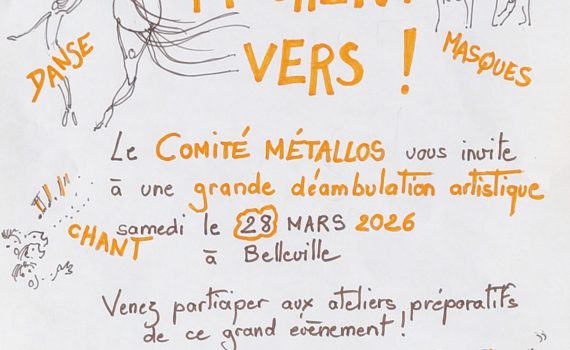 VERS !
DANSE
MASQUES
Le COMITÉ MÉTALLOS vous invite
à une grande déambulation artistique
samedi le 28 MARS 2026
CHANT
à Belleville
Venez participer aux ateliers préparatifs
de ce grand évènement !